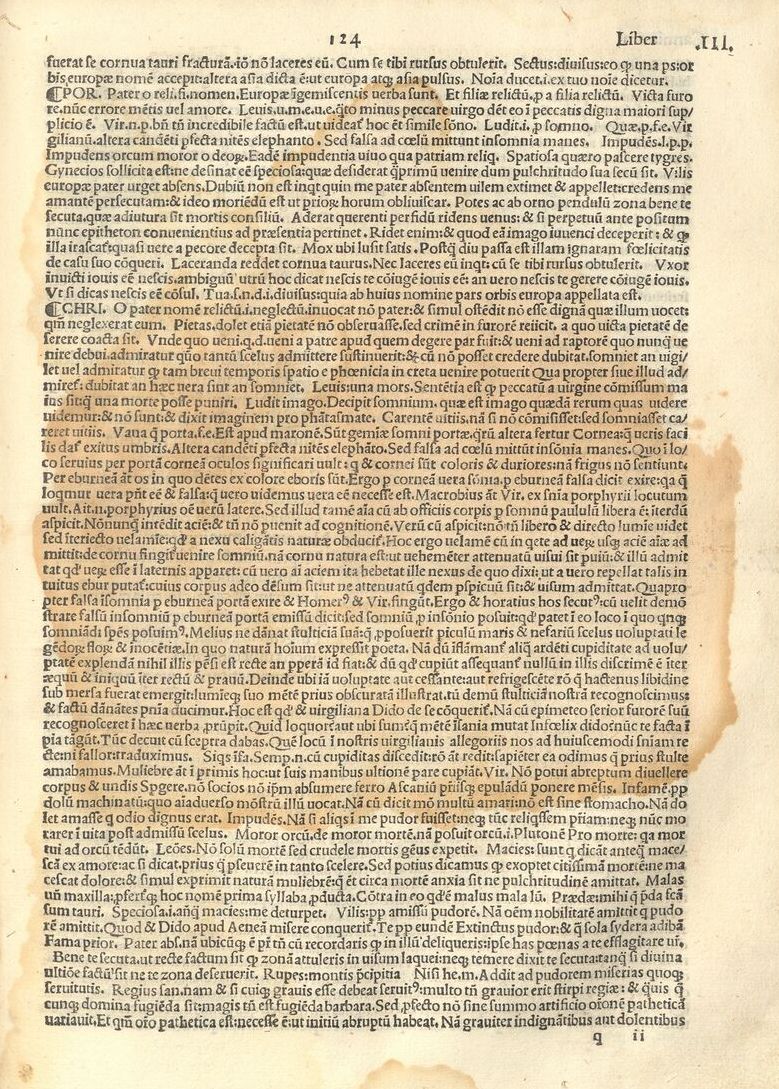 124 Liber .III.
fuerat se cornua tauri fracturā.iō nō laceres eū. Cum se tibi rursus obtulerit. Sectus:diuisus:eo ꝙ una ps:or
bis europæ nomē accepit:altera asia dicta ē:ut europa atqꝫ asia pulsus. Noīa ducet.i.ex tuo noīe dicetur.
¶POR. Pater o reli.fi.nomen.Europæ īgemiscentis uerba sunt. Et filiæ relictū.p a filia relictū. Victa furo
re.nūc errore mētis uel amore. Leuis.u.m.e.u.e.q̄to minus peccare uirgo dēt eo ī peccatis digna maiori sup/
plicio ē. Vir.n.p.bn̄ tn̄ incredibile factū est.ut uideat᷑ hoc ēt simile sōno. Ludit.i.ꝓ somno. Quæ.p.f.e.Vir
gilianū.altera candēti ꝑfecta nitēs elephanto. Sed falsa ad cœlū mittunt insomnia manes. Impudēs.l.p.p.
Impudens orcum moror o deoꝝ. Eadē impudentia uiuo qua patriam reliq. Spatiosa quæro pascere tygres.
Gynecios sollicita est:ne desinat eē speciosa:quæ desiderat q̄primū uenire dum pulchritudo sua secū sit. Vilis
europæ pater urget absens. Dubiū non est inqt quin me pater absentem uilem extimet & appellet:credens me
amantē persecutam:& ideo moriēdū est ut prioꝝ horum obliuiscar. Potes ac ab orno pendulū zona bene te
secuta.quæ adiutura sit mortis consiliū. Aderat querenti perfidū ridens uenus: & si perpetuū ante positum
nūnc epitheton conuenientius ad præsentia pertinet. Ridet enim:& quod eā imago iuuenci deceperit: & ꝙ
illa irascat᷑:quasi uere a pecore decepta sit. Mox ubi lusit satis. Postq̄ diu passa est illam ignaram fœlicitatis
de casu suo cōqueri. Laceranda reddet cornua taurus. Nec laceres eū inqt: cū se tibi rursus obtulerit. Vxor
inuicti iouis eē nescis.ambiguū utrū hoc dicat nescis te cōiugē iouis eē: an uero nescis te gerere cōiugē iouis.
Vt si dicas nescis eē cōsul. Tua.s.n.d.i.diuisus:quia ab huius nomine pars orbis europa appellata est.
¶CHRI. O pater nomē relictū.i.neglectū.inuocat nō pater:& simul ostēdit nō esse dignā quæ illum uocet:
qm̄ neglexerat eum. Pietas.dolet etiā pietatē nō obseruasse.sed crimē in furorē reiicit. a quo uicta pietatē de
serere coacta sit. Vnde quo ueni.q.d.ueni a patre apud quem degere par fuit:& ueni ad raptorē quo nunq̄ ue
nire debui.admiratur quō tantū scelus admittere sustinuerit:& cū nō posset credere dubitat.somniet an uigi/
let uel admiratur ꝙ tam breui temporis spatio e phœnicia in creta uenire potuerit Qua propter siue illud ad/
miret᷑: dubitat an hæc uera sint an somniet. Leuis:una mors.Sentētia est ꝙ peccatū a uirgine cōmissum ma
ius sit:q̄ una morte posse puniri. Ludit imago. Decipit somnium. quæ est imago quædā rerum quas uidere
uidemur:& nō sunt:& dixit imaginem pro phātasmate. Carentē uitiis.nā si nō cōmisisset:sed somniasset ca/
reret uitiis. Vana q̄ porta.f.e.Est apud maronē. Sūt gemiæ somni portæ.q̄rū altera fertur Cornea:q̄ ueris faci
lis dat᷑ exitus umbris. Altera candēti ꝑfecta nitēs elephāto.Sed falsa ad cœlū mittūt insōnia manes. Quo ī lo/
co seruius per portā corneā oculos significari uult: q & cornei sūt coloris & duriores:nā frigus nō sentiunt.
Per eburneā āt os in quo dētes ex colore eboris sūt.Ergo p corneā uera sōnia.p eburneā falsa dicit exire:qa q̄
loqmur uera pn̄t eē & falsa:q̄ uero uidemus uera eē necesse est.Macrobius āt Vir. ex sn̄ia porphyrii locutum
uult.Ait.n.porphyrius oē uerū latere. Sed illud tamē aīa cū ab officiis corpis p somnū paululū libera ē: iterdū
aspicit.Nōnunq̄ intēdit aciē:& tn̄ nō puenit ad cognitionē. Verū cū aspicit:nō tn̄ libero & directo lumīe uidet
sed īteriecto uelamīe:qd᷑ a nexu caligātis naturæ obducit᷑.Hoc ergo uelamē cū in qete ad ueꝝ usqꝫ aciē aīæ ad
mittit:de cornu fingit᷑ uenire somniū.nā cornu natura est:ut uehemēter attenuatū uisui sit puiū:& illū admit
tat qd᷑ ueꝝ esse ī laternis apparet: cū uero aī aciem ita hebetat ille nexus de quo dixi:ut a uero repellat talis in
tuitus ebur putat᷑:cuius corpus adeo dēsum sit:ut ne attenuatū qdem ꝑspicuū sit:& uisum admittat. Quapro
pter falsa īsomnia p eburneā portā exire & Homerꝰ & Vir.fingūt.Ergo & horatius hos secutꝰ:cū uelit demō
strare falsū insomniū p eburneā portā emissū dicit:sed somniū ꝓ insōnio posuit:qd᷑ patet ī eo loco ī quo qnqꝫ
somniādi spēs posuimꝰ. Melius ne dānat stulticiā suā:q̄ ꝓposuerit piculū maris & nefariū scelus uoluptati le
gēdoꝝ:floꝝ & inocētiæ. In quo naturā hoīum expressit poeta. Nā dū īflāmant᷑ aliq̄ ardēti cupiditate ad uolu/
ptatē explendam nihil illis pēsi est recte an pperā id fiat:& dū qd᷑ cupiūt assequant᷑ nullū in illis discrimē ē iter
æquū & iniquū iter rectū & prauū. Deinde ubi iā uoluptate aut cessante:aut refrigescēte rō q̄ hactenus libidine
sub mersa fuerat emergit:lumīeqꝫ suo mētē prius obscuratā illustrat.tū demū stulticiā nostrā recognoscimus:
& factū dānātes pn̄ia ducimur. Hoc est qd᷑ & uirgiliana Dido de se cōquerit᷑.Nā cū epimeteo serior furorē suū
recognosceret ī hæc uerba ꝓrūpit.Quid loquor:aut ubi sum:q̄ mētē īsania mutat Infœlix dido:nūc te facta ī
pia tāgūt.Tūc decuit cū sceptra dabas.Quē locū ī nostris uirgilianis allegoriis nos ad huiuscemodi sn̄iam re
cte:ni fallor:traduximus. Siqs īfa.Semp.n.cū cupiditas discedit:rō āt redit:sapiēter ea odimus q̄ prius stulte
amabamus.Muliebre āt ī primis hoc:ut suis manibus ultionē pare cupiāt. Vir. Nō potui abreptum diuellere
corpus & undis Spgere.nō socios nō ip̄m absumere ferro Ascaniū pr̄iisqꝫ epulādū ponere mēsis. Infamē.pp
dolū machinatū:quo aīaduerso mōstrū illū uocat.Nā cū dicit mō multū amari:nō est sine stomacho. Nā do
let amasse q odio dignus erat. Impudēs.Nā si aliqs ī me pudor fuisset:neqꝫ tūc reliqssem pr̄iam:neqꝫ nūc mo
rarer ī uita post admissū scelus. Moror orcū.de moror mortē.nā posuit orcū.i.Plutonē Pro morte: qa mor
tui ad orcū tēdūt. Leōes.Nō solū mortē sed crudele mortis gēus expetit. Macies: sunt q dicāt anteq̄ mace/
scā ex amore:ac si dicat.prius q̄ pseuerē in tanto scelere.Sed potius dicamus ꝙ exoptet citissimā mortē:ne ma
cescat dolore:& simul exprimit naturā muliebrē:q̄ ēt circa mortē anxia sit ne pulchritudinē amittat. Malas
un̄ maxilla:ꝑferq̄ꝫ hoc nomē prima syllaba ꝓducta.Cōtra in eo qd᷑ ē malus mala lū. Prædæ:mihi q̄ p̄da fcā
sum tauri. Speciosa.i.anq̄ macies:me deturpet. Vilis:pp amissū pudorē. Nā oēm nobilitatē amittit q̄ pudo
rē amittit.Quod & Dido apud Aeneā misere conquerit᷑.Te pp eundē Extinctus pudor:& q̄ sola sydera adibā
Fama prior. Pater abs.nā ubicūqꝫ ē pr̄ tn̄ cū recordaris ꝙ in illū deliqueris:ipse has pœnas a te efflagitare ur̄.
Bene te secuta.ut recte factum sit ꝙ zonā attuleris in usum laquei:neqꝫ temere dixit te secuta:tanq̄ si diuina
ultiōe factū sit ne te zona deseruerit. Rupes:montis p̄cipitia Nisi he.m.Addit ad pudorem miserias quoqꝫ
seruitutis. Regius san.nam & si cuiqꝫ grauis esse debeat seruitꝰ:multo tn̄ grauior erit stirpi regiæ: & q̄uis q
cunqꝫ domina fugiēda sit:magis tn̄ est fugiēda barbara.Sed ꝓfecto nō sine summo artificio orōnē patheticā
uariauit.Et qm̄ orō pathetica est:necesse ē:ut initiū abruptū habeat. Nā grauiter indignātibus aut dolentibus
q ii